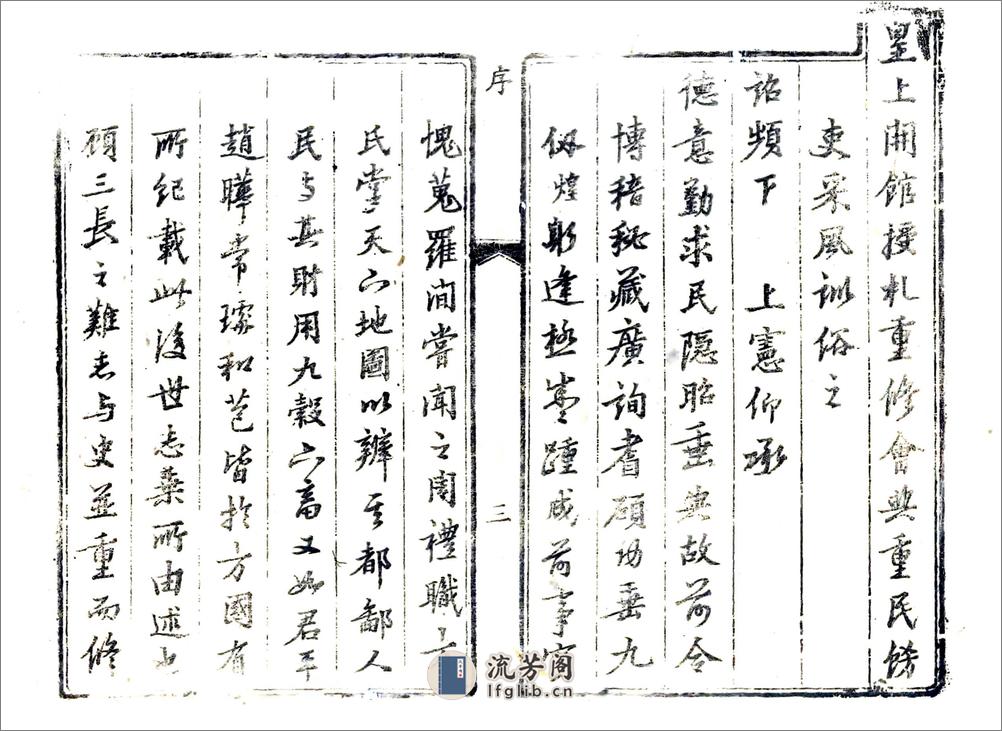 皇上開館授札重修會典重民
吏采風訓俗之
詔頻下　上憲仰承
德意勤求民隱昭垂典故前令
博稽秘藏廣詢耆碩功垂九
仭煌躬逢極盛踵成前事
序
三
愧蒐羅間嘗聞之周禮職方
氏掌天下地圖以辨其都鄙人
民与其財用九穀六畜又如君平
趙曄常璩和苞皆於方國有
所紀載此後世志乘所由述也
顧三長之難志与史並重而修
流芳阁
lfglib.cn